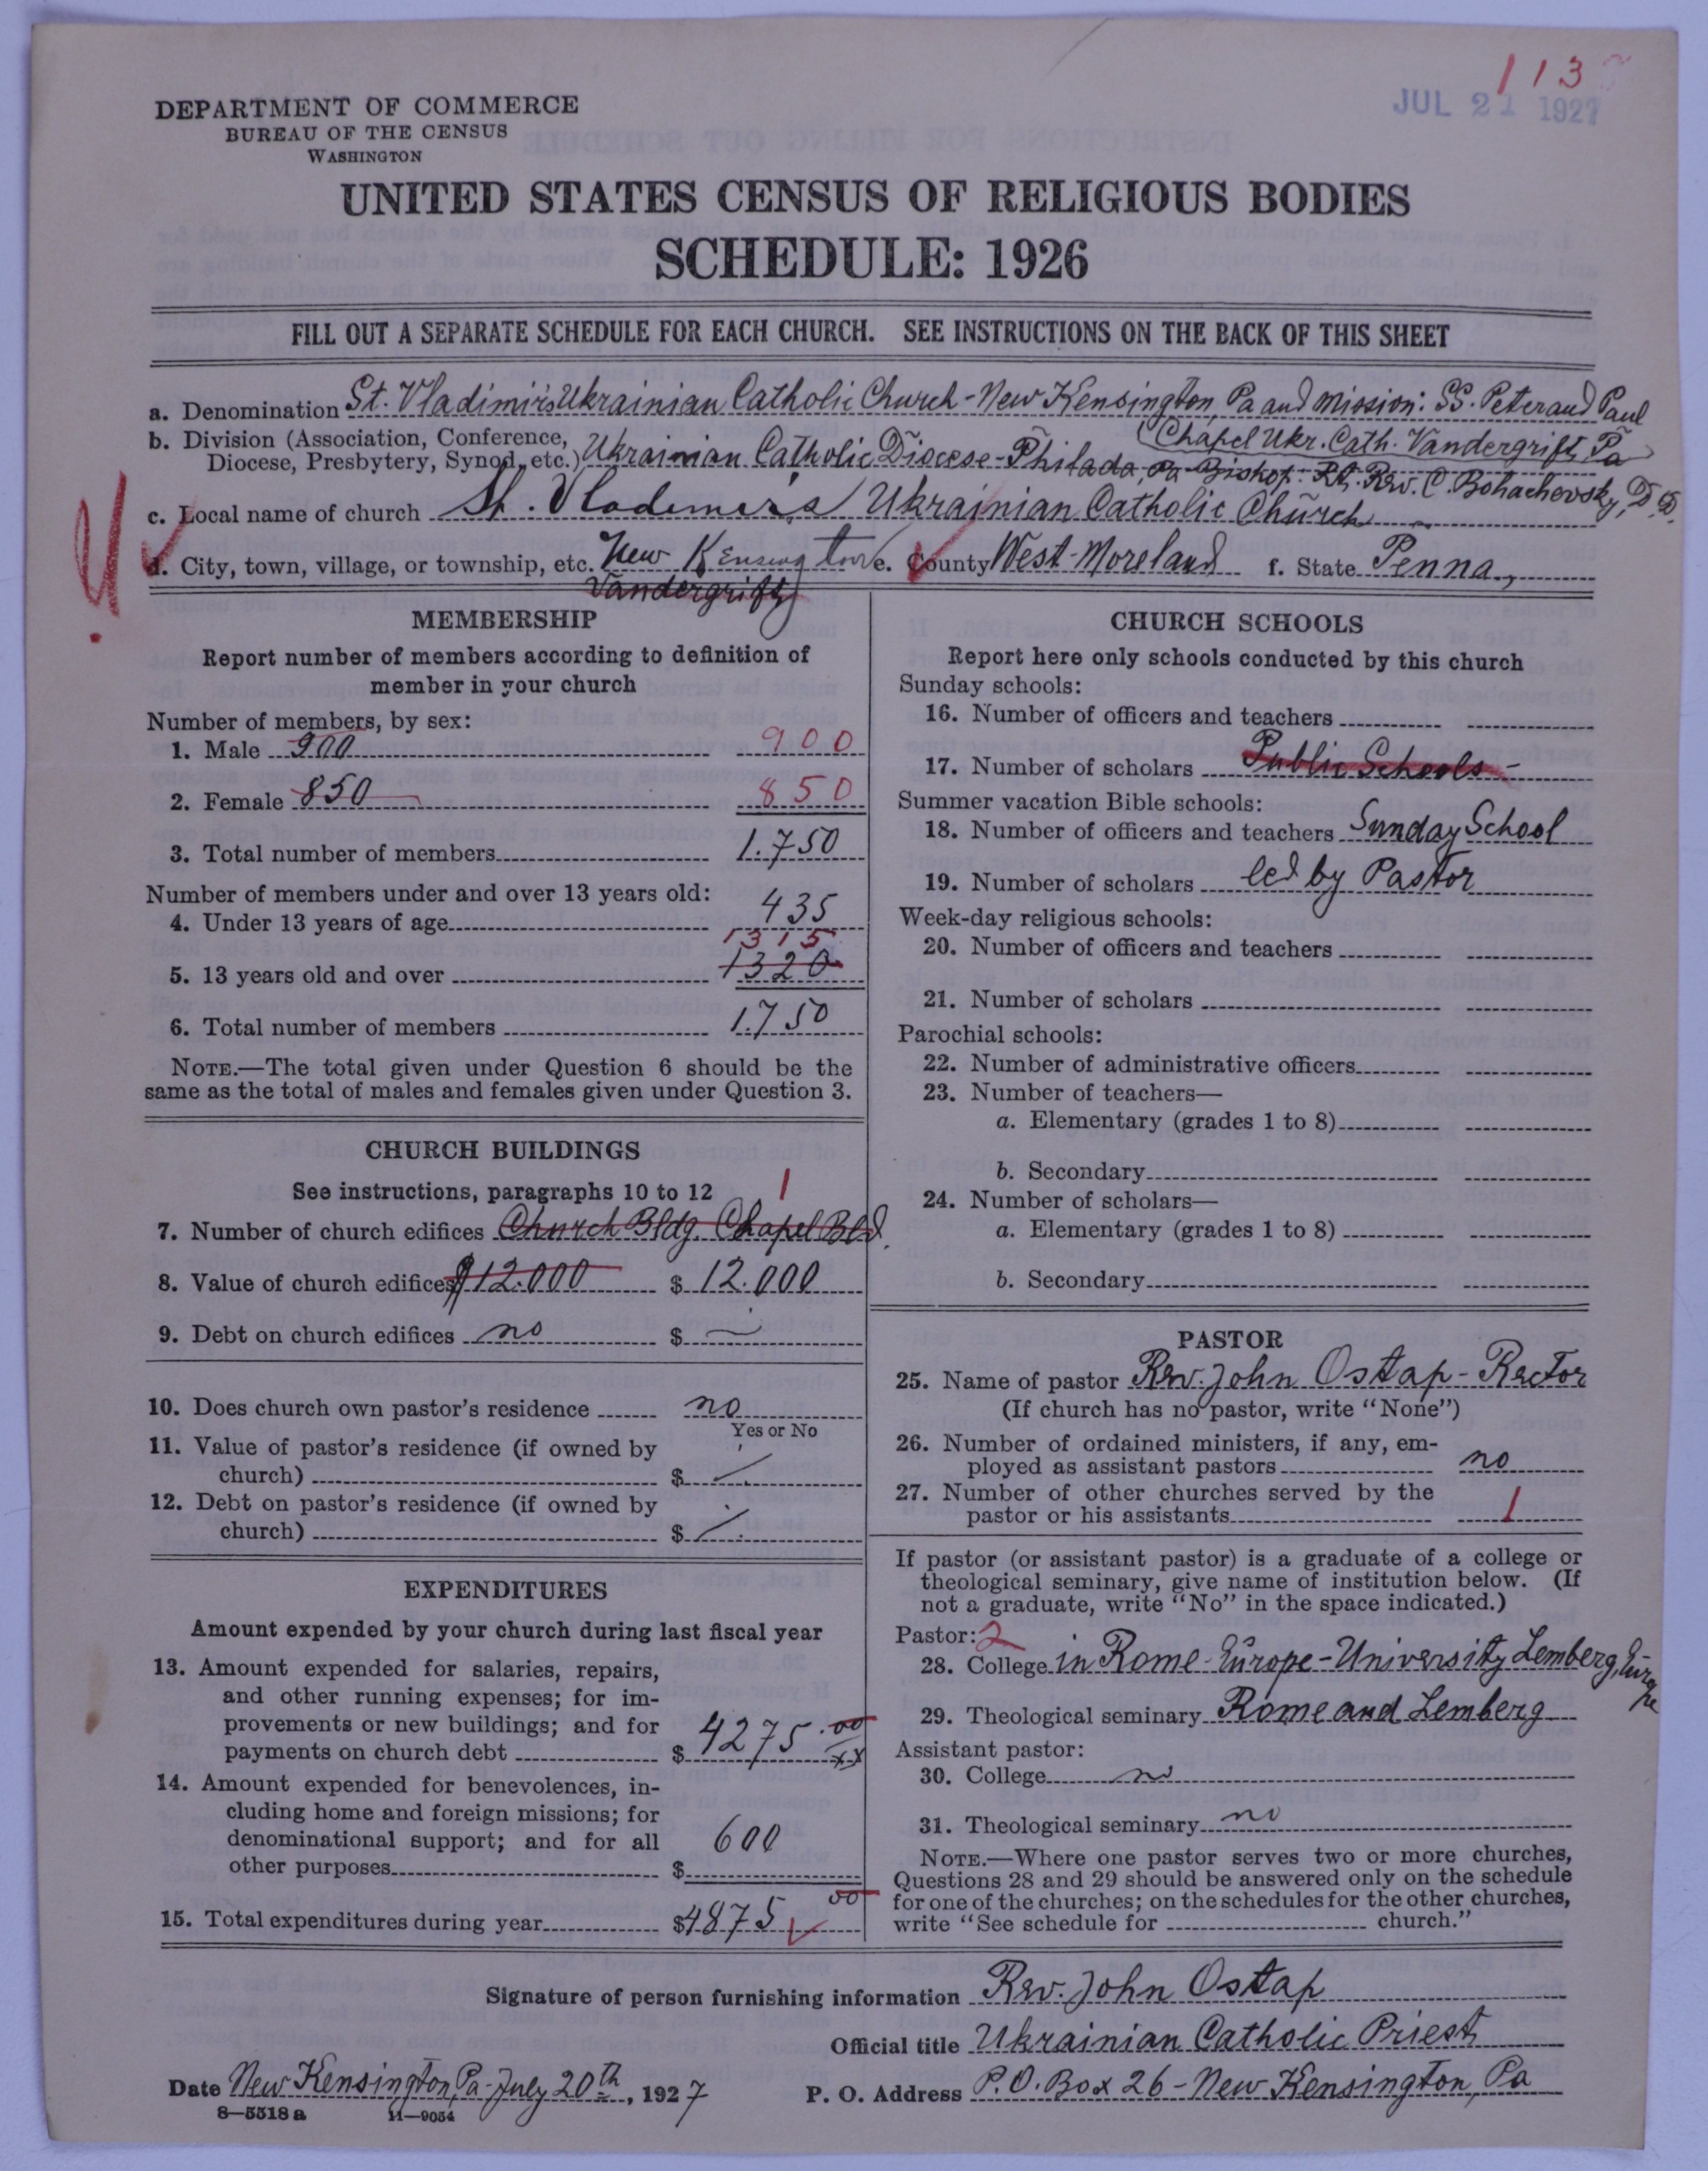 113
JUL 21 1927
DEPARTMENT OF COMMERCE
BUREAU OF THE CENSUS
WASHINGTON
UNITED STATES CENSUS OF RELIGIOUS BODIES
SCHEDULE: 1926
FILL OUT A SEPARATE SCHEDULE FOR EACH CHURCH. SEE INSTRUCTIONS ON THE BACK OF THIS SHEET
a. Denomination St. Vladimir's Ukrainian Catholic Church - New Kensington, Pa and mission: SS. Peter and Paul
(Chapel Ukr. Cath. Vandergrift, Pa)
b. Division (Association, Conference,
Diocese, Presbytery, Synod, etc.) Ukrainian Catholic Diocese - Philada, Pa - Bishop: Rt. Rev. C. Bohachevsky, D.D.
c. Local name of church St. Vlademir's Ukrainian Catholic Church
d. City, town, village, or township, etc. New Kensington e. County West-Moreland f. State Penna.,
Vandergrift
MEMBERSHIP
Report number of members according to definition of
member in your church
Number of members, by sex:
1. Male 900 900
2. Female 850 850
3. Total number of members 1.750
Number of members under and over 13 years old:
4. Under 13 years of age 435
1315
5. 13 years old and over 1320
6. Total number of members 1.750
NOTE.—The total given under Question 6 should be the
same as the total of males and females given under Question 3.
CHURCH BUILDINGS
See instructions, paragraphs 10 to 12 1
7. Number of church edifices Church Bldg. Chapel Bld.
8. Value of church edifices $12.000 $ 12.000
9. Debt on church edifices no $ —
10. Does church own pastor's residence no
Yes or No
11. Value of pastor's residence (if owned by
church) $
12. Debt on pastor's residence (if owned by
church) $
EXPENDITURES
Amount expended by your church during last fiscal year
13. Amount expended for salaries, repairs,
and other running expenses; for im-
provements or new buildings; and for
payments on church debt $ 4275.00
xx
14. Amount expended for benevolences, in-
cluding home and foreign missions; for
denominational support; and for all
other purposes $ 600
15. Total expenditures during year $4875 00
CHURCH SCHOOLS
Report here only schools conducted by this church
Sunday schools:
16. Number of officers and teachers
17. Number of scholars Public Schools -
Summer vacation Bible schools:
18. Number of officers and teachers Sunday School
19. Number of scholars led by Pastor
Week-day religious schools:
20. Number of officers and teachers
21. Number of scholars
Parochial schools:
22. Number of administrative officers
23. Number of teachers—
a. Elementary (grades 1 to 8)
b. Secondary
24. Number of scholars—
a. Elementary (grades 1 to 8)
b. Secondary
PASTOR
25. Name of pastor Rev. John Ostap - Rector
(If church has no pastor, write "None")
26. Number of ordained ministers, if any, em-
ployed as assistant pastors no
27. Number of other churches served by the
pastor or his assistants 1
If pastor (or assistant pastor) is a graduate of a college or
theological seminary, give name of institution below. (If
not a graduate, write "No" in the space indicated.)
Pastor: 2
28. College in Rome-Europe-University Lemberg, Europe
29. Theological seminary Rome and Lemberg
Assistant pastor:
30. College no
31. Theological seminary no
NOTE.—Where one pastor serves two or more churches,
Questions 28 and 29 should be answered only on the schedule
for one of the churches; on the schedules for the other churches,
write "See schedule for church."
Signature of person furnishing information Rev. John Ostap
Official title Ukrainian Catholic Priest
Date New Kensington, Pa - July 20th, 1927 P. O. Address P.O. Box 26 - New Kensington, Pa
8—5518 a 11—9054